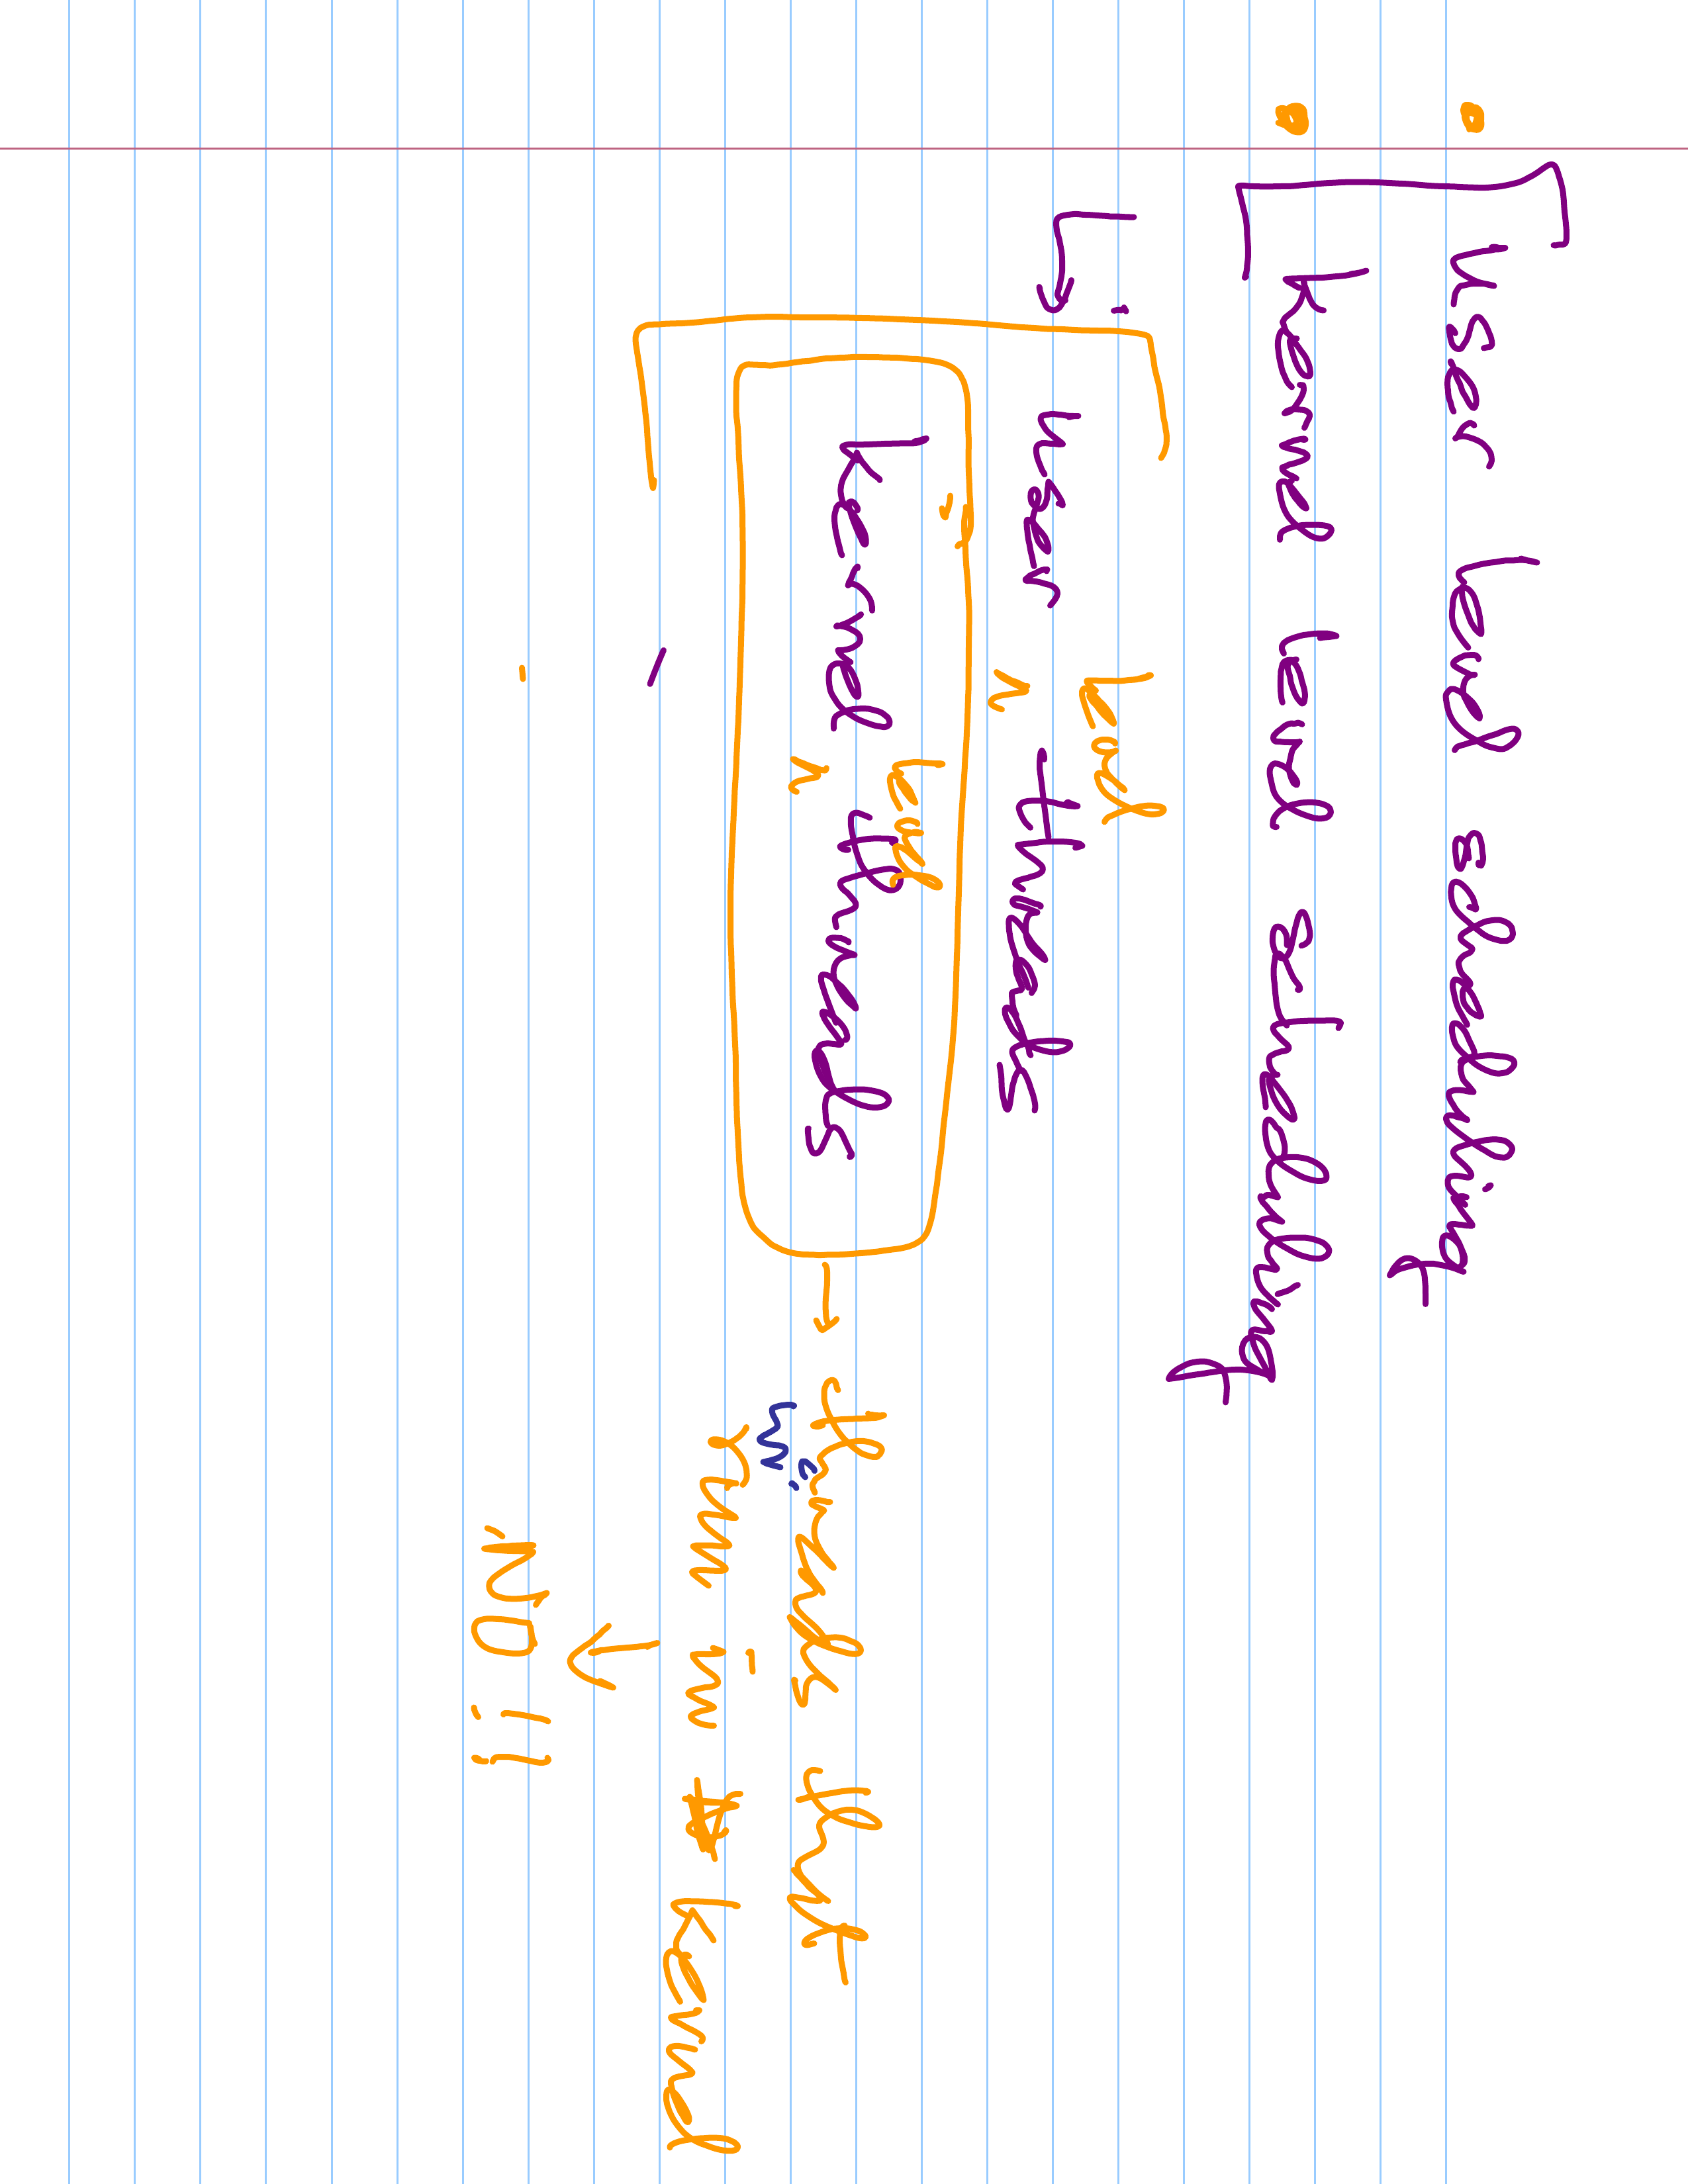 User level scheduling
kernel level scheduling
user level threads
kernel level threads → threads that
run in kernel
NO !!